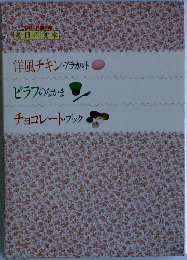 毎日の食卓
洋風チキン・アラカルト
ピラフのなかま
チョコレート・ブック